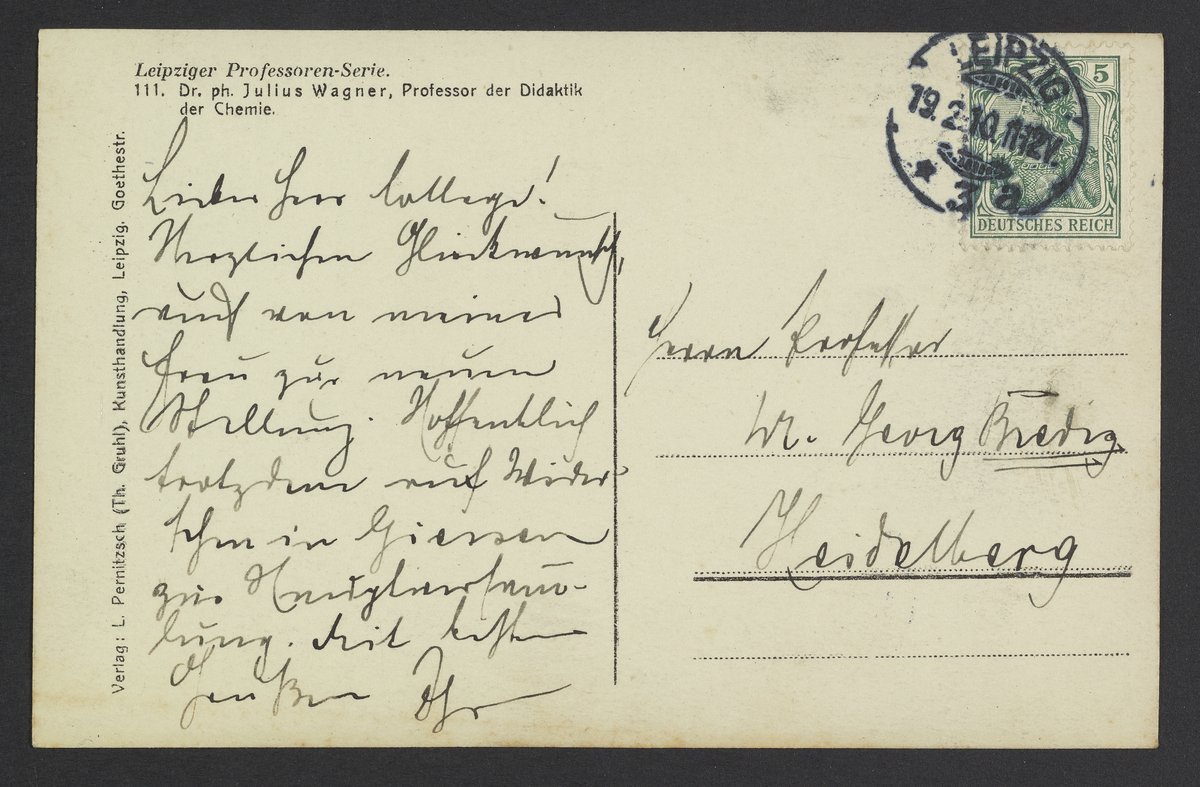 Leipziger Professoren-Serie.
111. Dr. ph. Julius Wagner, Professor der Didaktik
der Chemie.
Verlag: L. Pernitzsch (Th. Gruhl), Kunsthandlung, Leipzig. Goethestr.
Lieber Herr College!
Herzlichen Glückwunsch,
auch von meiner
Frau zur neuen
Stellung. Hoffentlich
trotzdem auf Wieder
sehn in Giessen
zur Hauptversamm-
lung. Mit besten
Grüßen Ihr
LEIPZIG
19.2.10.11-12V.
* 3 a
5
DEUTSCHES REICH
Herrn Professor
Dr. Georg Bredig
Heidelberg